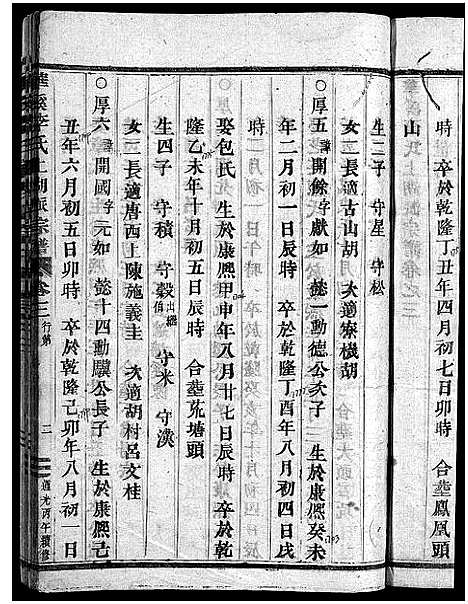 時　卒於乾隆丁丑年四月初七日卯時　合塟鳳凰頭
山
生二子　守星　守松
女二　長適古山胡　次適寮機胡
○厚五諱開餘字獻如　懿一動德公次子　生於康熈癸未
年二月初一日辰時　卒於乾隆丁酉年八月初四日戌
時
娶包氏　生於康熈甲申年八月廿七日辰時　卒於乾
隆乙未年十月初五日辰時　合塟𡊮塘頭
生四子　守積　守穀出繼　守米　守漢
女二　長適唐西上陳施義圭　次適胡村呂文桂
○厚六諱開國字元如　懿十四動驥公長子　生於康熈己
丑年六月初五日卯時　卒於乾隆己卯年八月初一日
氏上湖派宗譜　卷之二　行第　二　道光丙午續修